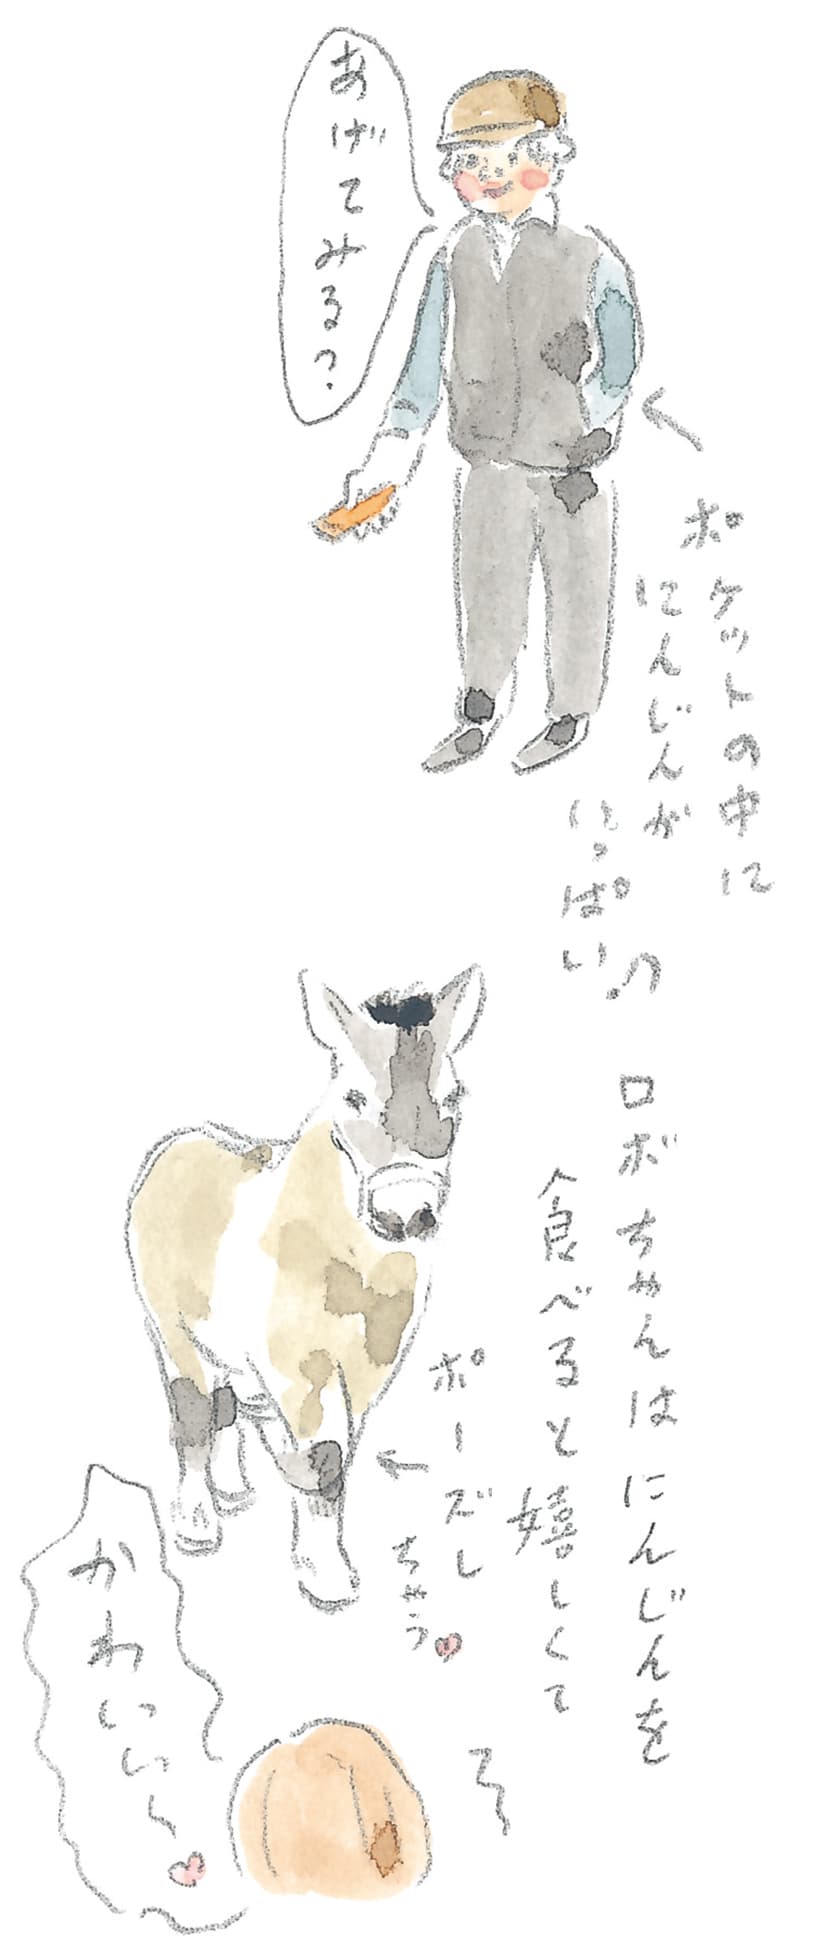 あげてみる？
ポケットの中に
にんじんが
いっぱい♪
ロボちゃんは にんじんを
食べると嬉しくて
ポーズし
ちゃう♥
かわいい〜♥